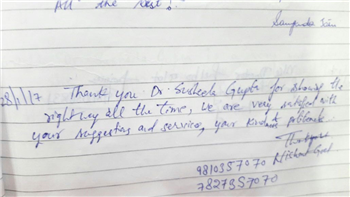 All the best!
28/1/17 Thank you Dr. Sudeek Gupta for showing the
right way all the time, we are very satisfied with
your suggestions and services, your kindness politeness
Thank you
9810357070 Nishant Goel
7827957070